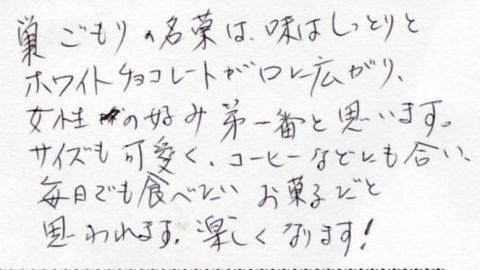 巣ごもりの名菓は、味はしっとりと
ホワイトチョコレートが口に広がり、
女性の好み第一番と思います。
サイズも可愛く、コーヒーなどにも合い、
毎日でも食べたいお菓子だと
思われます。楽しくなります!